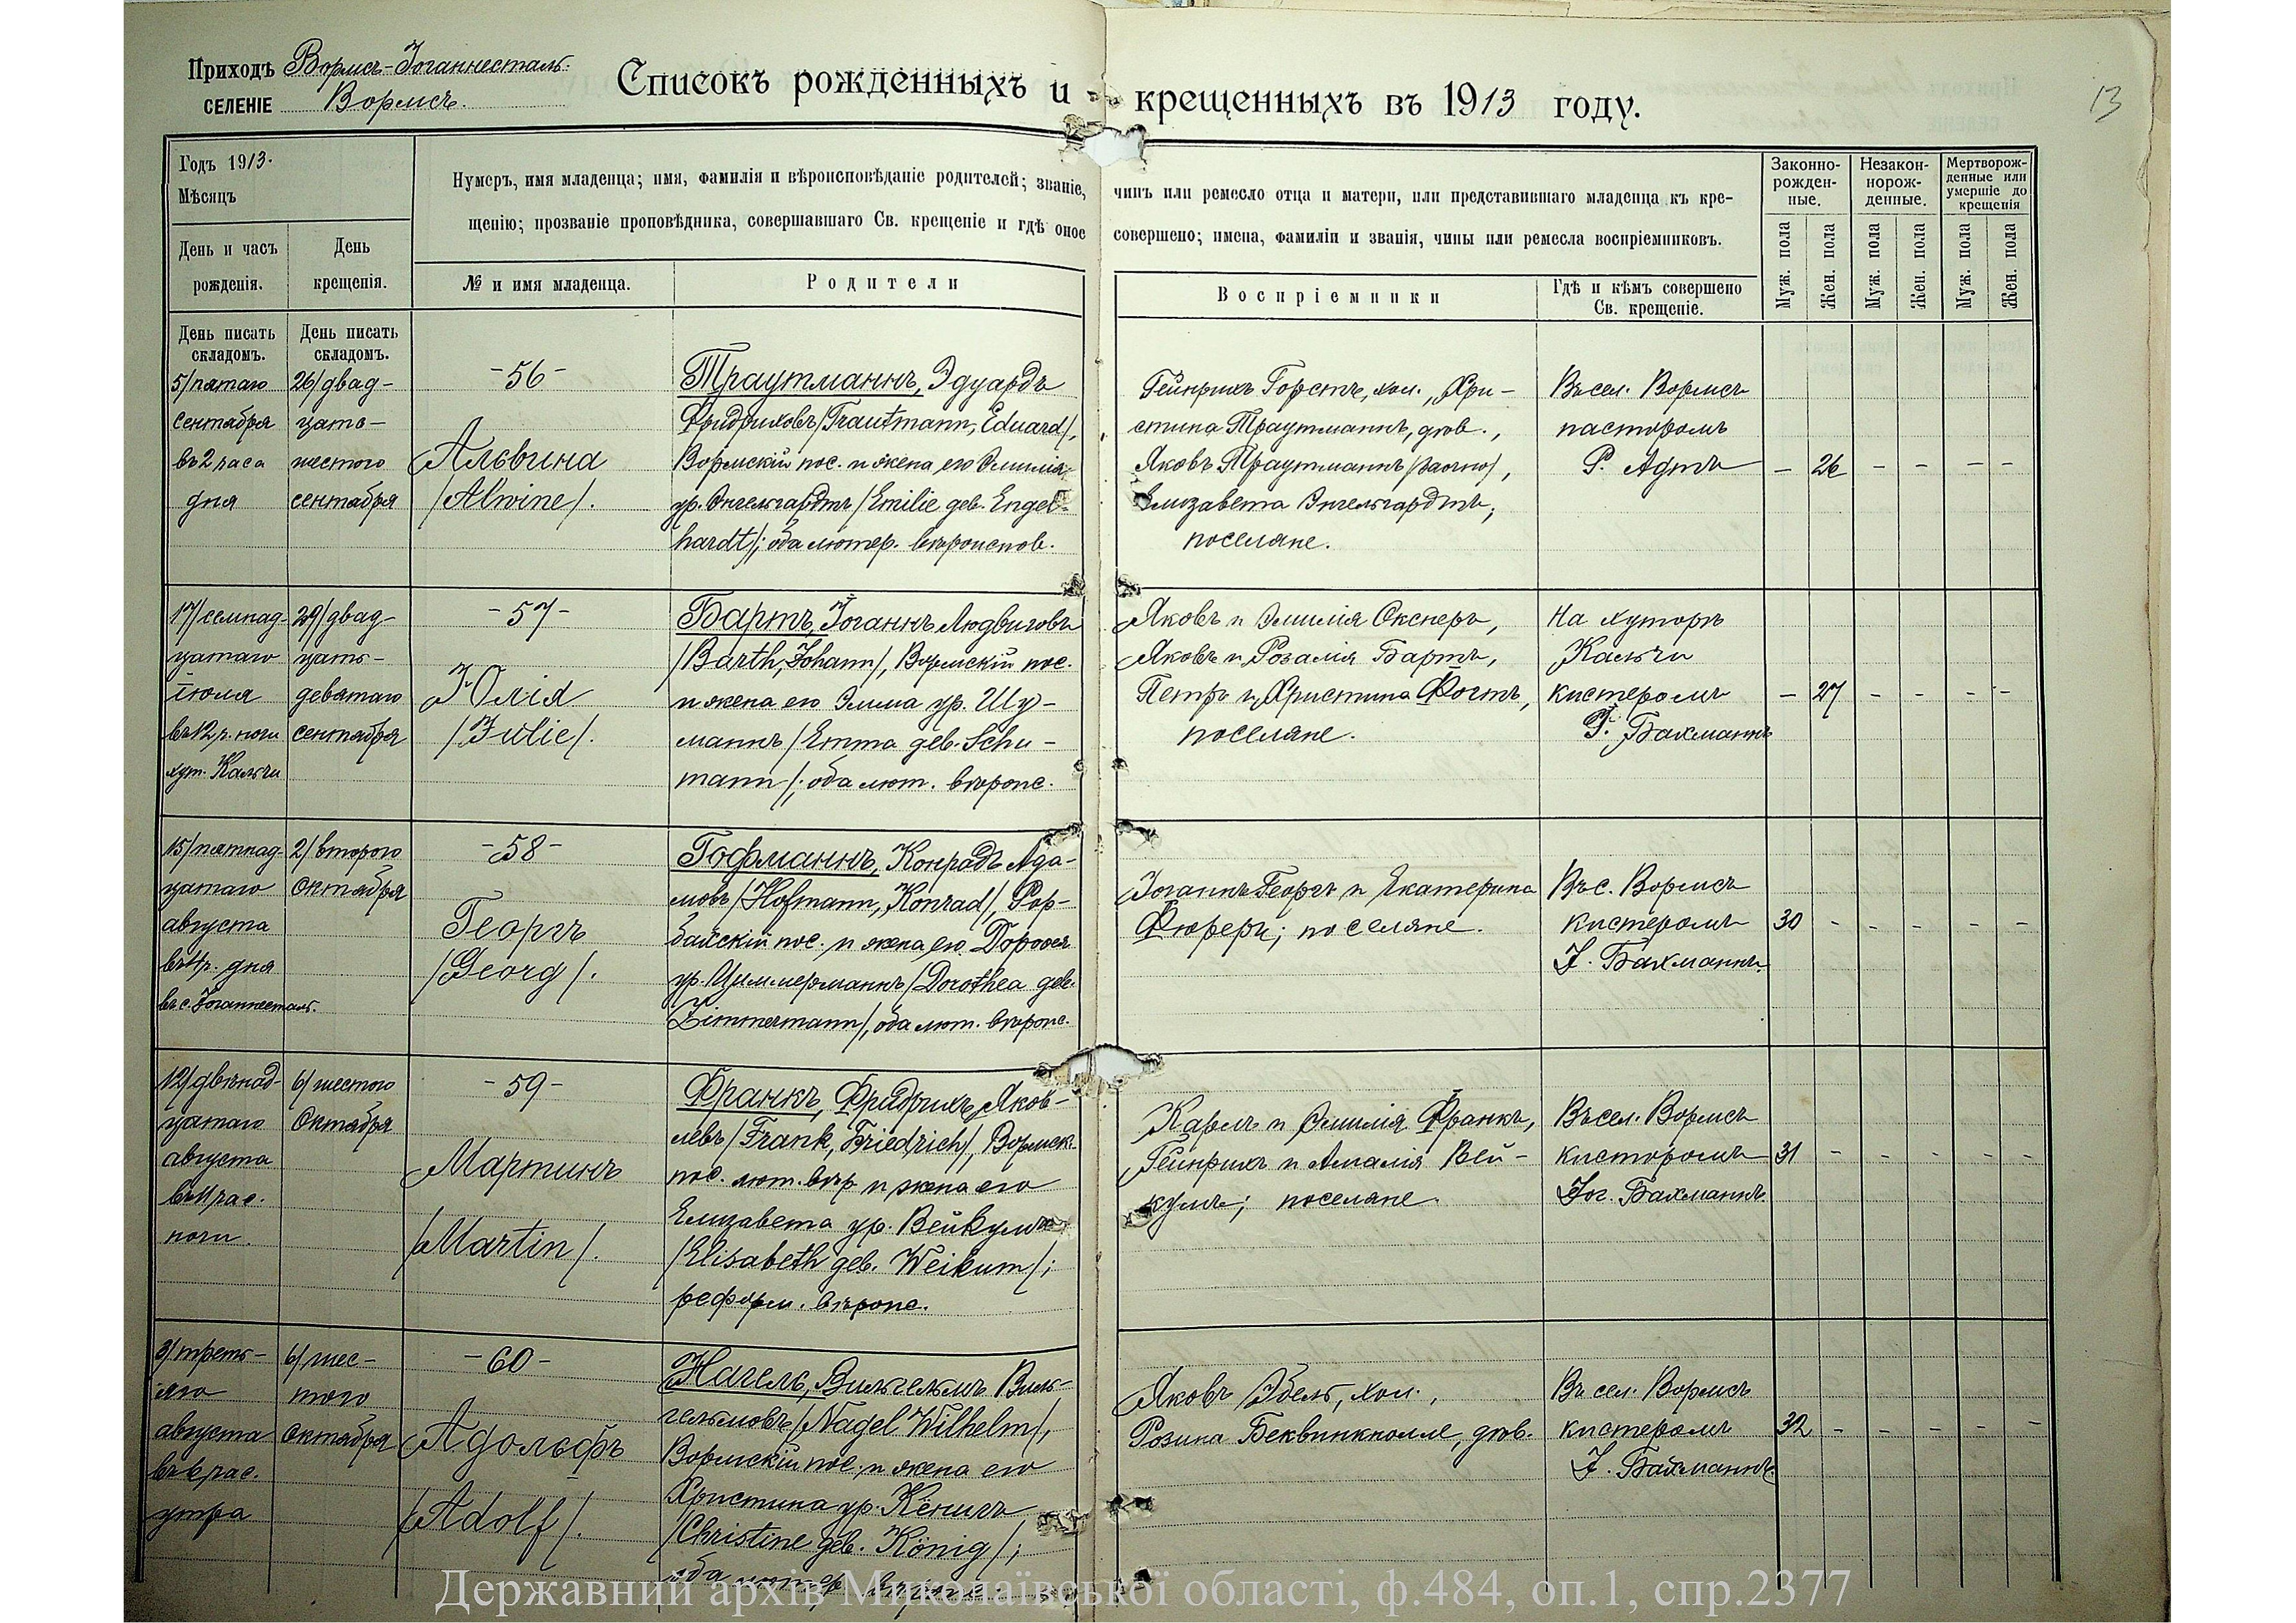 Приходъ Вормсъ-Іоганнесталь.
СЕЛЕНІЕ Вормсъ.
Списокъ рожденныхъ и крещенныхъ въ 1913 году.
13
Годъ 1913.
Мѣсяцъ
День и часъ рожденія.
День крещенія.
Нумеръ, имя младенца; имя, фамилія и вѣроисповѣданіе родителей; званіе, чинъ или ремесло отца и матери, или представившаго младенца къ кре-
щенію; прозваніе проповѣдника, совершавшаго Св. крещеніе и гдѣ оное совершено; имена, фамиліи и званія, чины или ремесла воспріемниковъ.
№ и имя младенца.
Родители
Воспріемники
Гдѣ и кѣмъ совершено
Св. крещеніе.
Законно-
рожден-
ные.
Незакон-
норож-
денные.
Мертворож-
денные или
умершіе до
крещенія
Муж. пола
Жен. пола
Муж. пола
Жен. пола
Муж. пола
Жен. пола
День писать
складомъ.
День писать
складомъ.
5/пятаго
сентября
въ 2 часа
дня
26/двад-
цать-
шестого
сентября
-56-
Альвина
/Alwine/.
Траутманнъ, Эдуардъ
Фридриховъ/Trautmann, Eduard/,
Вормскій пос. и жена его Эмилія
ур. Энгельгардтъ/Emilie geb. Engel-
hardt/; оба лютер. вѣроиспов.
Гейнрихъ Горстъ, хол., Хри-
стина Траутманнъ, дѣв.,
Яковъ Траутманнъ/заочно/,
Елизавета Энгельгардтъ,
поселяне.
Въ сел. Вормсъ
пасторомъ
Р. Адтъ
- 26 - - - -
17/семнад-
цатаго
іюля
въ 12 ч. ночи
хут. Кальчи
29/двад-
цать-
девятаго
сентября
-57-
Юлія
/Julie/.
Бартъ, Іоганнъ Людвиговъ
/Barth, Johann/, Вормскій пос.
и жена его Эмма ур. Шу-
маннъ/Emma geb. Schu-
mann/; оба лют. вѣроис.
Яковъ и Эмилія Окснеръ,
Яковъ и Розалія Бартъ,
Петръ и Христина Фогтъ,
поселяне.
На хуторѣ
Кальчи
кистеромъ
І. Бахманнъ
- 27 - - - -
15/пятнад-
цатаго
августа
въ 4 ч. дня
въ с. Іоганнесталь.
2/второго
октября
-58-
Георгъ
/Georg/.
Гофманнъ, Конрадъ Ада-
мовъ/Hofmann, Konrad/, Рор-
байскій пос. и жена его Доротея
ур. Циммерманнъ/Dorothea geb.
Zimmermann/, оба лют. вѣроис.
Іоганнъ Георгъ и Екатерина
Фюреръ; поселяне.
Въ с. Вормсъ
кистеромъ
І. Бахманнъ.
30 - - - - -
12/двѣнад-
цатаго
августа
въ 11 час.
ночи.
6/шестого
Октября
-59-
Мартинъ
/Martin/.
Франкъ, Фридрихъ Яков-
левъ/Frank, Friedrich/, Вормск.
пос. лют. вѣр. и жена его
Елизавета ур. Вейкумъ
/Elisabeth geb. Weikum/;
реформ. вѣроис.
Карлъ и Эмилія Франкъ,
Гейнрихъ и Амалія Вей-
кумъ; поселяне.
Въ сел. Вормсъ
кисторомъ
Іог. Бахманнъ.
31 - - - - -
3/треть-
яго
августа
въ 6 час.
утра
6/шес-
того
октября
-60-
Адольфъ
/Adolf/.
Нагель, Вильгельмъ Виль-
гельмовъ/Nagel Wilhelm/,
Вормскій пос. и жена его
Христина ур. Кёнигъ
/Christine geb. König/;
оба лютер. вѣроис.
Яковъ Эбель, хол.,
Розина Беквинкнолле, дѣв.
Въ сел. Вормсъ
кистеромъ
І. Бахманнъ.
32 - - - - -
Державний архів Миколаївської області, ф.484, оп.1, спр.2377